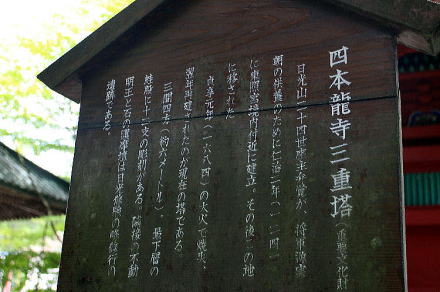 四本龍寺三重塔(重要文化財)
日光山二十四世座主弁覚が、将軍源実
朝の供養のために仁治二年(一二四一
に東照宮鐘楼付近に建立。その後この地
に移された
貞享元年(一六八四)の大火で焼失、
翌年再建されたのが現在の塔である
三間四方(約六メートル)、最下層の
蛙股に十二支の彫刻がある 隣接の不動
明王と石の護摩壇は日光修験の修行の
遺跡である。